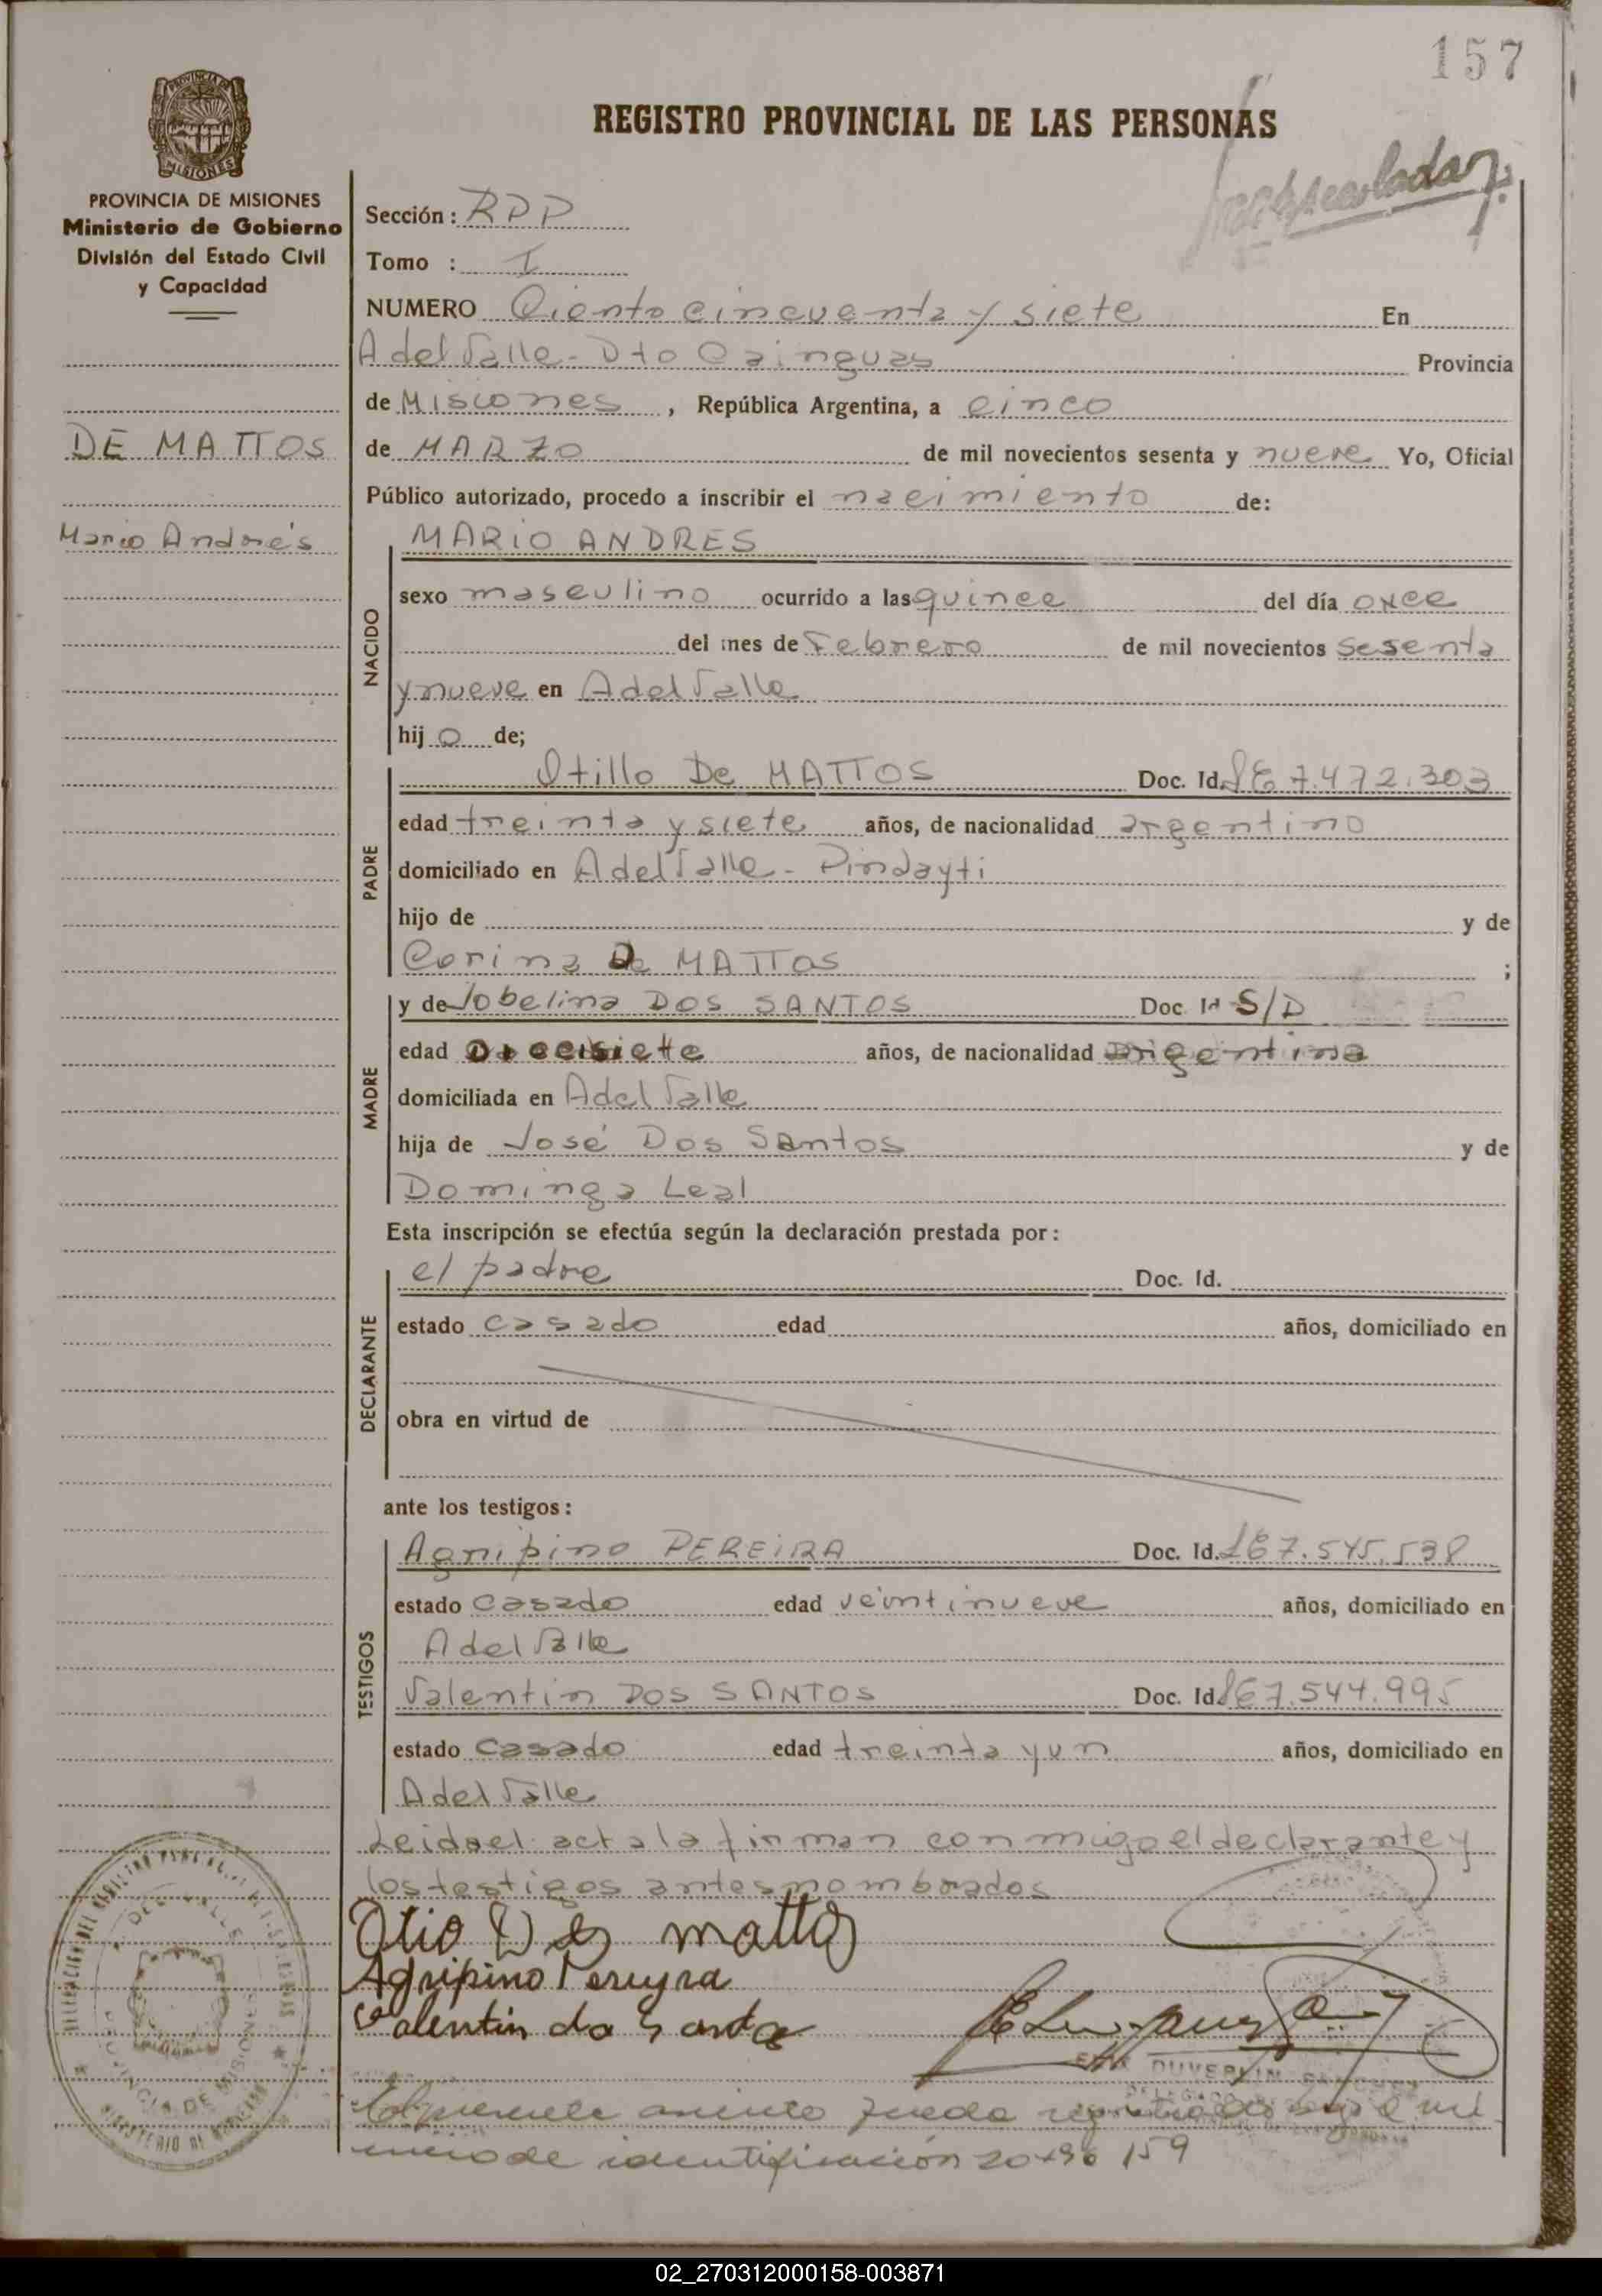 157
REGISTRO PROVINCIAL DE LAS PERSONAS
MISIONES
PROVINCIA DE MISIONES
Ministerio de Gobierno
División del Estado Civil
y Capacidad
DE MATTOS
Mario Andrés
Sección: RPP
Tomo : I
NUMERO Ciento cincuenta y siete En
A del Valle - Dto Cainguas Provincia
de Misiones, República Argentina, a cinco
de MARZO de mil novecientos sesenta y nueve Yo, Oficial
Público autorizado, procedo a inscribir el nacimiento de:
NACIDO
MARIO ANDRES
sexo masculino ocurrido a las quince del día once
del mes de Febrero de mil novecientos sesenta
y nueve en A del Valle
hijo de;
PADRE
Otillo De MATTOS Doc. Id. LE 7.472.303
edad treinta y siete años, de nacionalidad argentino
domiciliado en A del Valle - Pindayti
hijo de y de
Corina De MATTOS ;
MADRE
y de Jobelina DOS SANTOS Doc. Id S/D
edad Diecisiete años, de nacionalidad argentina
domiciliada en A del Valle
hija de José Dos Santos y de
Dominga Leal
Esta inscripción se efectúa según la declaración prestada por:
DECLARANTE
el padre Doc. Id.
estado casado edad años, domiciliado en
obra en virtud de
ante los testigos:
TESTIGOS
Agripino PEREIRA Doc. Id. LE 7.545.538
estado casado edad veintinueve años, domiciliado en
A del Valle
Valentin DOS SANTOS Doc. Id. LE 7.544.995
estado casado edad treinta y un años, domiciliado en
A del Valle
Leida el acta la firman conmigo el declarante y
los testigos antes nombrados
Otio D es mattos
Agripino Pereyra
Valentin do Santos
PROVINCIA DE MISIONES
El presente asiento queda registrado bajo el nú
mero de identificación 20496 159
02_270312000158-003871